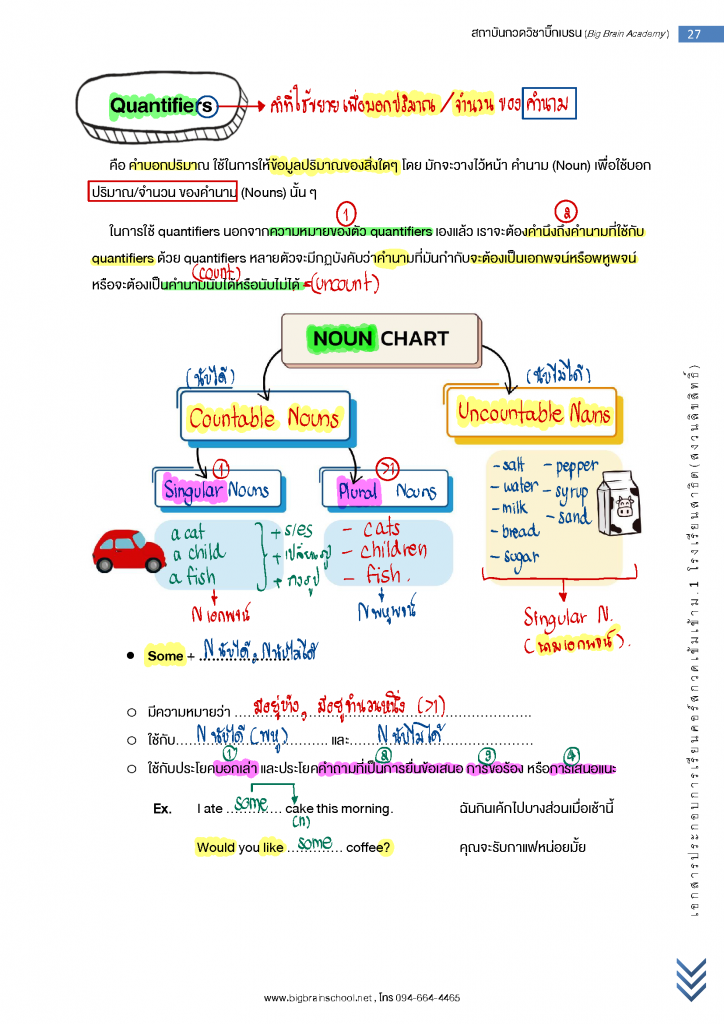 สถาบันกวดวิชาบิ๊กเบรน (Big Brain Academy) 27
Quantifiers → คำที่ใช้ขยาย เพื่อบอกปริมาณ / จำนวน ของ คำนาม
คือ คำบอกปริมาณ ใช้ในการให้ข้อมูลปริมาณของสิ่งใดๆ โดย มักจะวางไว้หน้า คำนาม (Noun) เพื่อใช้บอก
ปริมาณ/จำนวน ของคำนาม (Nouns) นั้น ๆ
1 2
ในการใช้ quantifiers นอกจากความหมายของตัว quantifiers เองแล้ว เราจะต้องคำนึงถึงคำนามที่ใช้กับ
quantifiers ด้วย quantifiers หลายตัวจะมีกฎบังคับว่าคำนามที่มันกำกับจะต้องเป็นเอกพจน์หรือพหูพจน์
(count)
หรือจะต้องเป็นคำนามนับได้หรือนับไม่ได้ (uncount)
NOUN CHART
(นับได้) (นับไม่ได้)
Countable Nouns
Uncountable Nouns
1 >1
Singular Nouns
Plural Nouns
a cat
a child
a fish
+ s/es
+ เปลี่ยนรูป
+ คงรูป
- cats
- children
- fish.
- salt - pepper
- water - syrup
- milk - sand
- bread
- sugar
N เอกพจน์
N พหูพจน์
Singular N.
(นามเอกพจน์).
• Some + N นับได้, N นับไม่ได้
มีความหมายว่า มีอยู่บ้าง, มีอยู่จำนวนหนึ่ง (>1)
ใช้กับ N นับได้ (พหู) และ N นับไม่ได้
1 2 3 4
ใช้กับประโยคบอกเล่า และประโยคคำถามที่เป็นการยื่นข้อเสนอ การขอร้อง หรือการเสนอแนะ
Ex. I ate some cake this morning. ฉันกินเค้กไปบางส่วนเมื่อเช้านี้
(n)
Would you like some coffee? คุณจะรับกาแฟหน่อยมั้ย
เอกสารประกอบการเรียนคอร์สกวดเข้มเข้าม.1 โรงเรียนสาธิต(สงวนลิขสิทธิ์)
www.bigbrainschool.net , โทร 094-664-4465